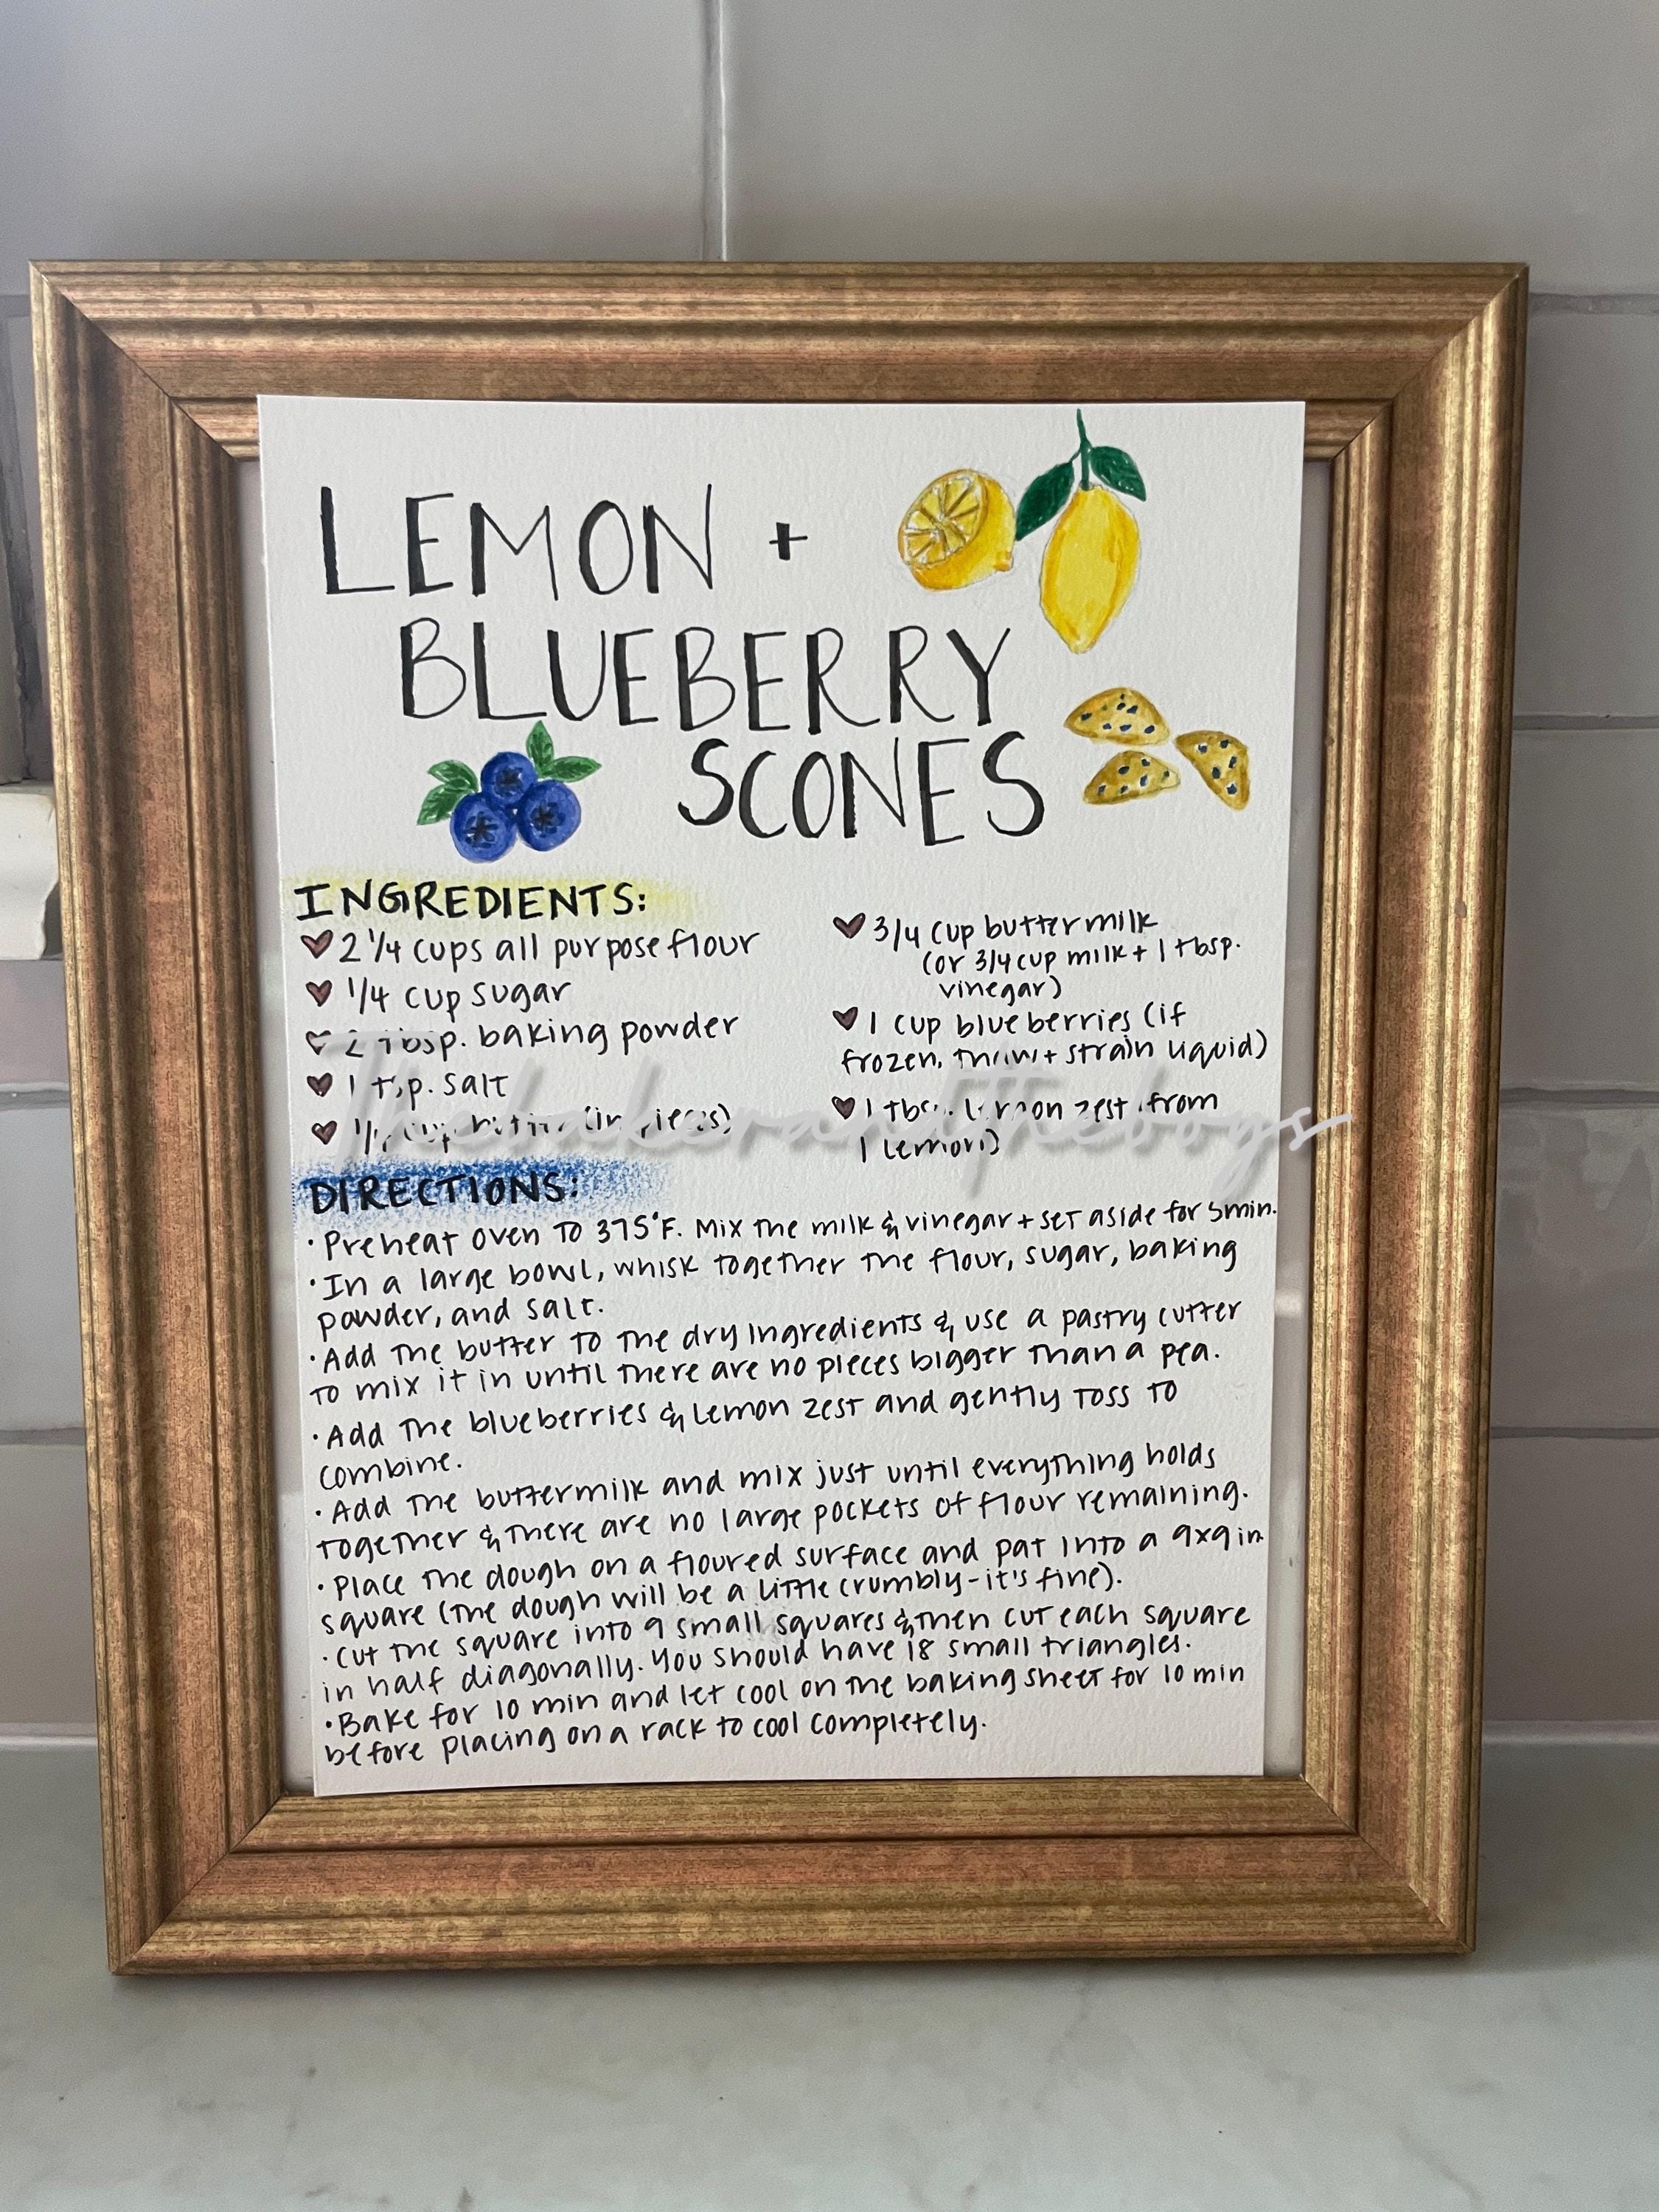 LEMON +
BLUEBERRY
SCONES
INGREDIENTS:
2 1/4 cups all purpose flour
1/4 cup sugar
2 tbsp. baking powder
1 tsp. salt
cup butter (in pieces)
3/4 cup buttermilk
(or 3/4 cup milk + 1 tbsp.
vinegar)
1 cup blueberries (if
frozen, thaw + strain liquid)
1 tbsp. lemon zest (from
1 lemon)
Thebakerandtheboys
DIRECTIONS:
• Preheat oven to 375°F. Mix the milk & vinegar + set aside for 5 min.
• In a large bowl, whisk together the flour, sugar, baking
powder, and salt.
• Add the butter to the dry ingredients & use a pastry cutter
to mix it in until there are no pieces bigger than a pea.
• Add the blueberries & lemon zest and gently toss to
combine.
• Add the buttermilk and mix just until everything holds
together & there are no large pockets of flour remaining.
• Place the dough on a floured surface and pat into a 9x9 in
square (the dough will be a little crumbly - it's fine).
• Cut the square into 9 small squares & then cut each square
in half diagonally. You should have 18 small triangles.
• Bake for 10 min and let cool on the baking sheet for 10 min
before placing on a rack to cool completely.